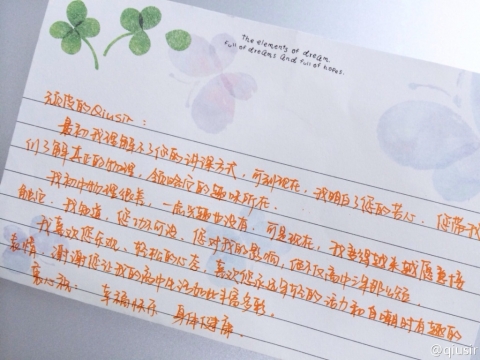 The elements of dream
full of dreams and full of hopes.
顽皮的Qiusir：
最初我误解了你的讲课方式，可到现在，我明白了您的苦心，您带我
们了解真正的物理，领略它的趣味所在。
我初中物理很差，一点兴趣也没有，可是现在，我变得越来越愿意接
触它。我知道，您功不可没，您对我的影响，绝不仅高中三年那么短。
我喜欢您乐观、轻松的心态，喜欢您永远年轻的活力和自嘲时有趣的
表情，谢谢您让我的高中生活如此丰富多彩。
衷心祝：幸福快乐 身体健康
@qiusir